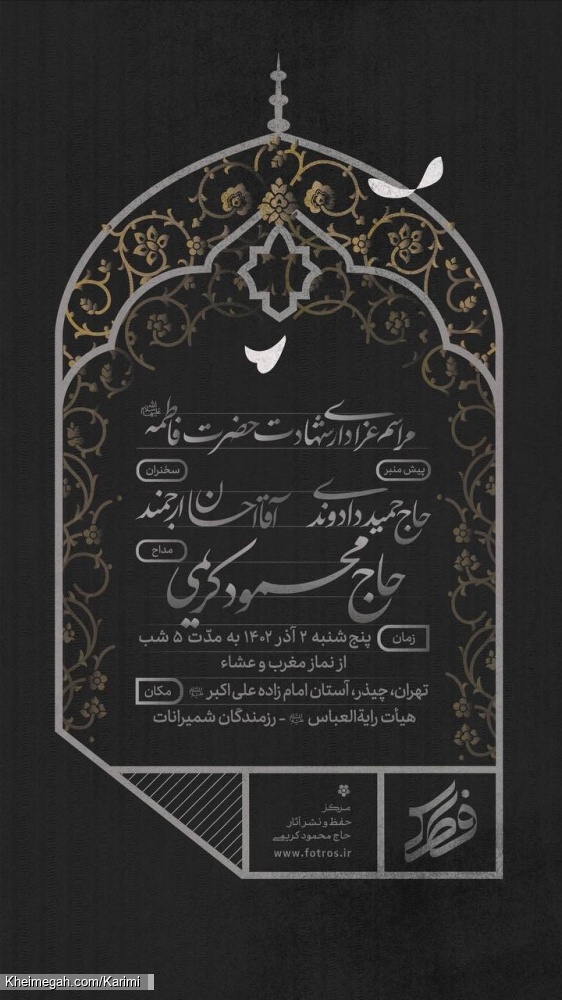 مراسم عزاداری شهادت حضرت فاطمه علیهاالسلام
پیش منبر
سخنران
حاج حمید دادوندی
آقا احسان ارجمند
مداح
حاج محمود کریمی
زمان
پنج شنبه ۲ آذر ۱۴۰۲ به مدّت ۵ شب
از نماز مغرب و عشاء
مکان
تهران، چیذر، آستان امام زاده علی اکبر
هیأت رایة العباس - رزمندگان شمیرانات
فطرس
مرکز
حفظ و نشر آثار
حاج محمود کریمی
www.fotros.ir
Kheimegah.com/Karimi